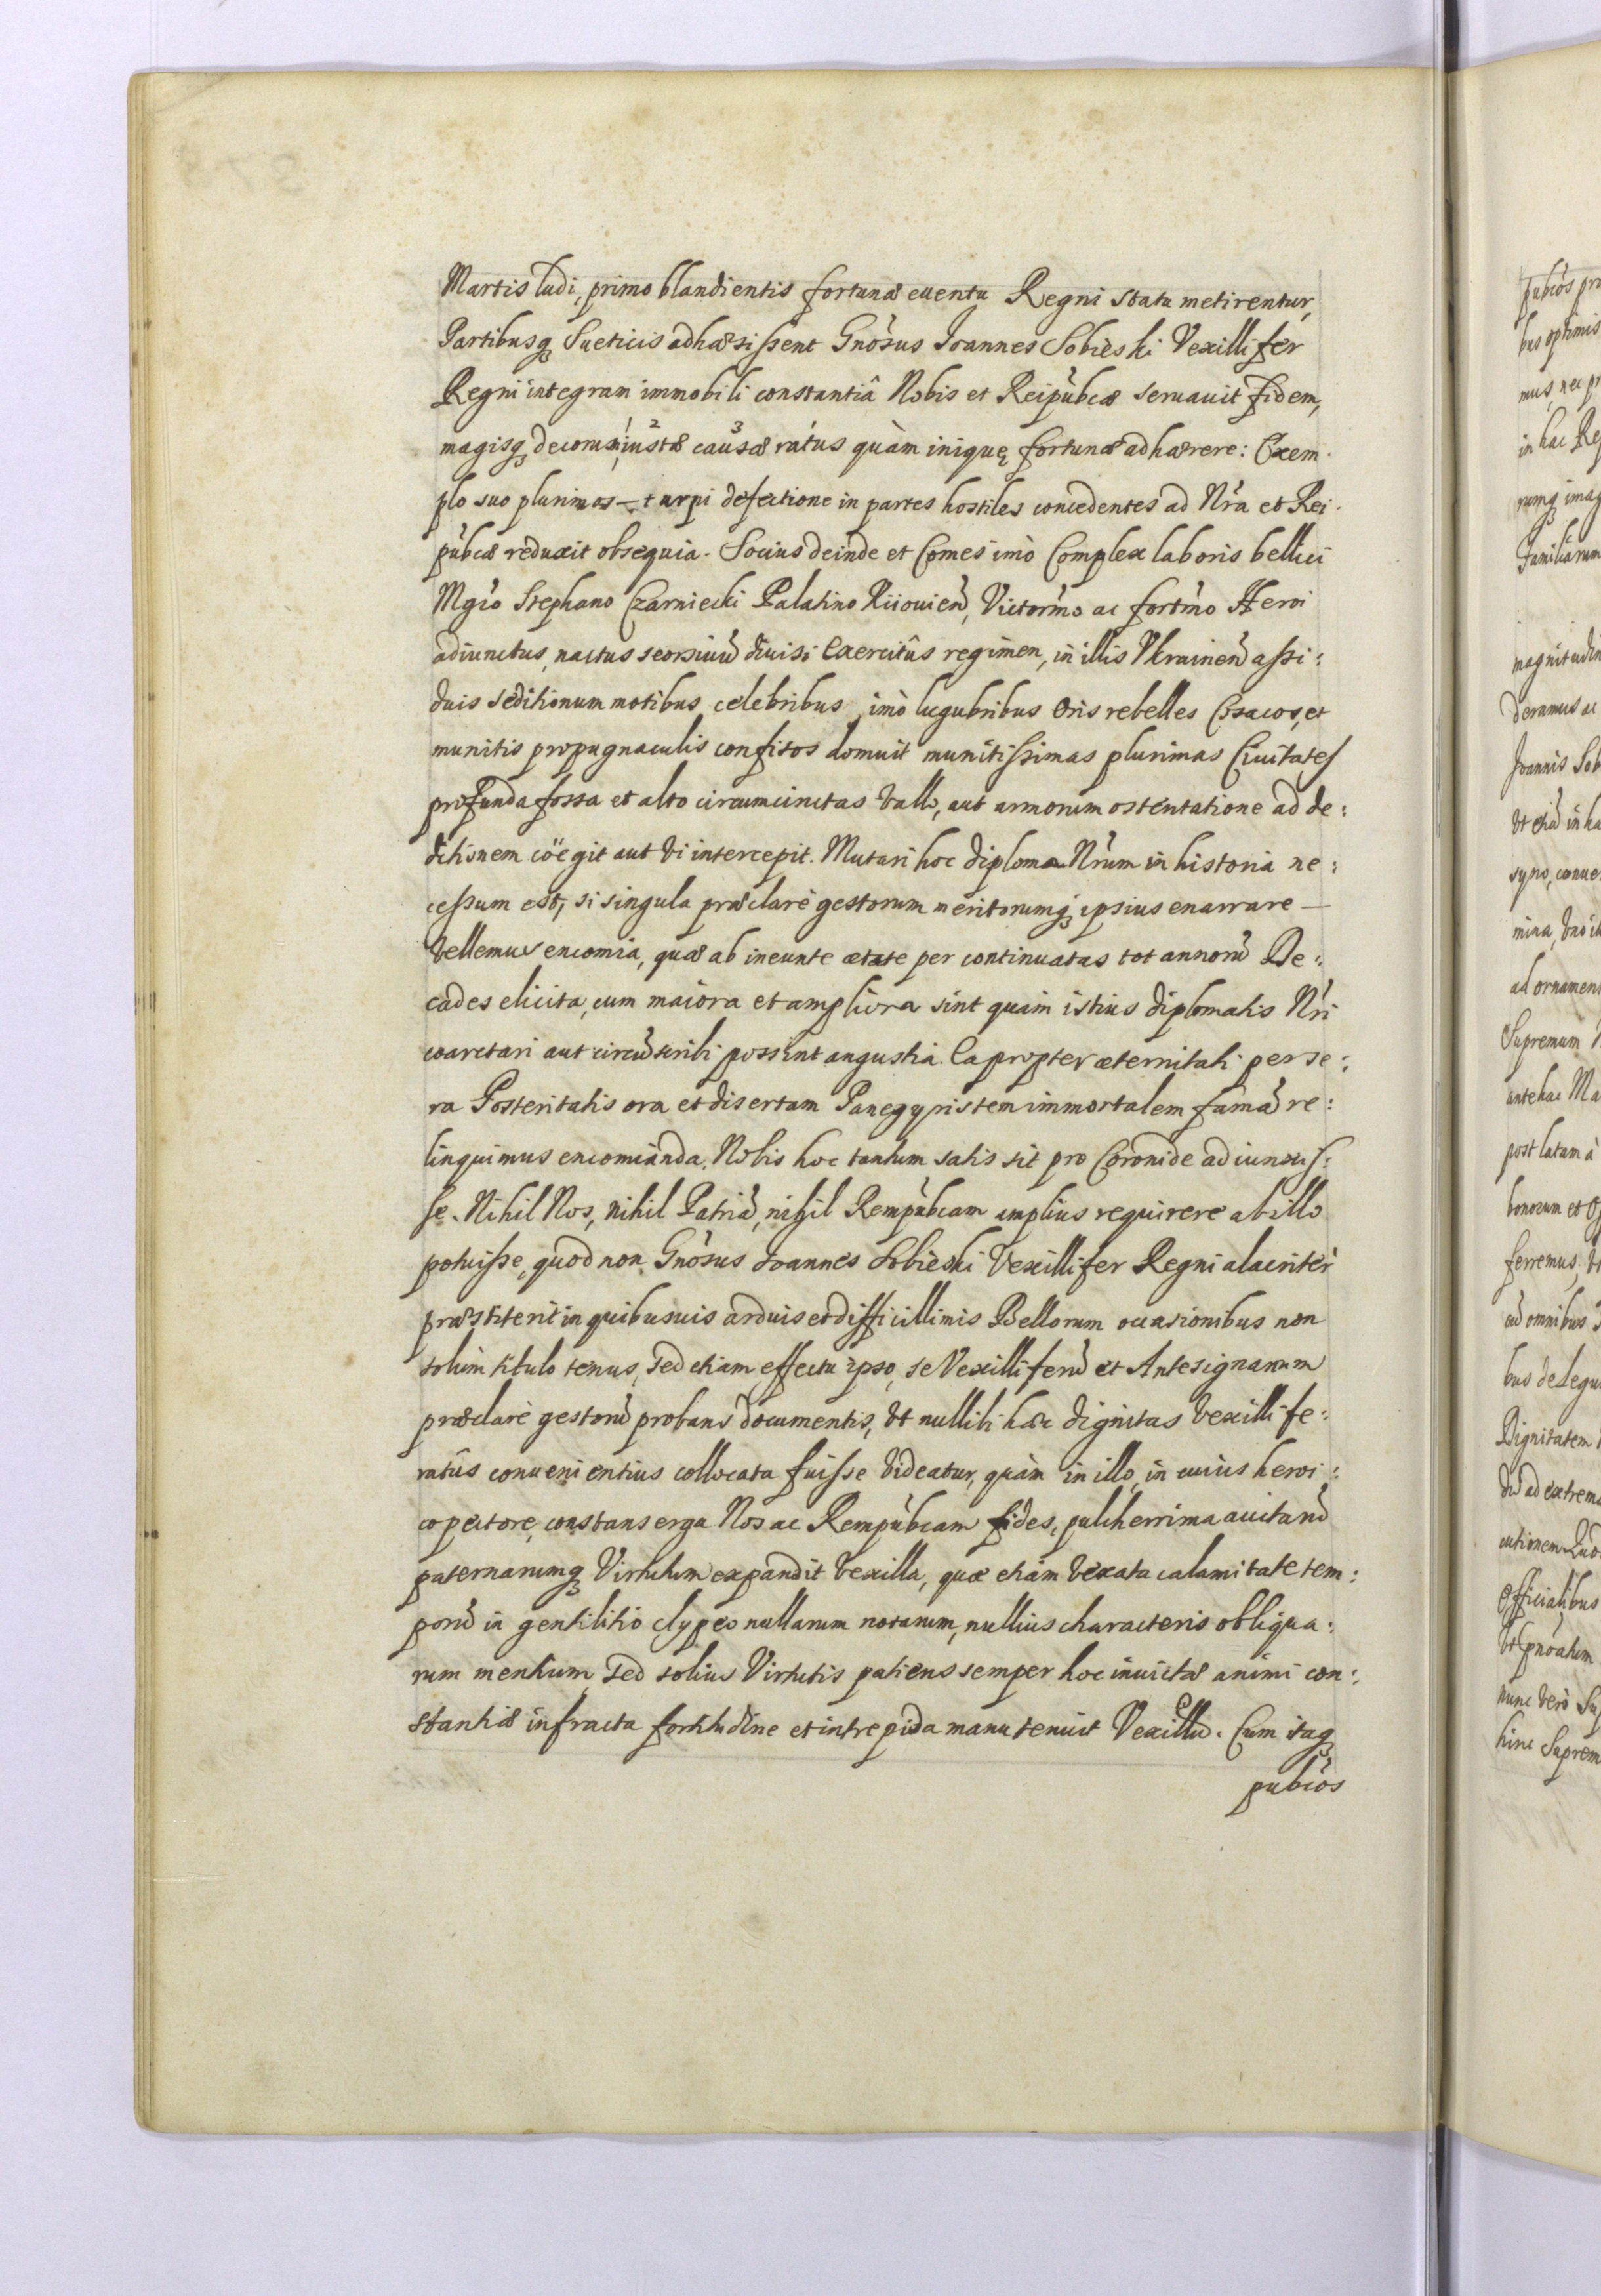 Martis ludi, primo blandientis fortunæ euentu Regni statu metirentur,
Partibusq₃ Sueticis adhæsissent Gnosus Ioannes Sobieski Vexillifer
Regni integram immobili constantiâ Nobis et Reipubcæ seruauit fidem,
magisq₃ decorum iustæ causæ ratus quàm iniquę fortunæ adhærere: Exem-
plo suo plurimos turpi defectione in partes hostiles concedentes ad Nra et Rei-
pubcæ reduxit obsequia. Socius deinde et Comes imò Complex laboris bellici
Mgco Stephano Czarniecki Palatino Kiiouien, Victormo ac fortmo Heroi
adiunctus, nactus seorsiuũ diuisi Exercitûs regimen, in illis Vkrainen assi:
duis seditionum motibus celebribus, imò lugubribus oris rebelles Cosacos, et
munitis propugnaculis confisos domuit munitissimas plurimas Ciuitates
profunda fossa et alto circumcinctas vallo, aut armorum ostentatione ad de:
ditionem cöegit aut vi intercepit. Mutari hoc diploma Nrum in historia ne:
cessum est, si singula præclarè gestorum meritorumq₃ ipsius enarrare
vellemus encomia, quæ ab ineunte ætate per continuatas tot annorũ De:
cades elicita, cum maiora et ampliora sint quàm istius diplomatis Nri
coarctari aut circũscribi possint angustia. Eapropter æternitati per se:
ra Posteritatis ora et disertam Panegyristem immortalem famã re:
linquimus encomianda. Nobis hoc tantum satis sit pro Coronide adiunxis:
se. Nihil Nos, nihil Patriã, nihil Rempubcam amplius requirere ab illo
potuisse, quod non Gnosus Ioannes Sobieski Vexillifer Regni alacriter
præstiterit in quibusuis arduis et difficillimis Bellorum occasionibus non
solum titulo tenus, sed etiam effectu ipso, se Vexilliferũ et Antesignanum
præclarè gestorũ probans documentis, vt nullibi hæc dignitas vexillife:
ratûs conuenientius collocata fuisse videatur, quàm in illo, in cuius heroi:
co pectore, constans erga Nos ac Rempubcam fides, pulcherrima auitarũ
paternarumq₃ Virtutum expandit vexilla, quæ etiam vexata calamitate tem:
porũ in gentilitio clypeo nullarum notarum, nullius characteris obliqua:
rum mentium, sed solius Virtutis patiens semper hoc inuictæ animi con:
stantiæ infracta fortitudine et intrepida manu tenuit Vexillũ. Cum itaq₃
pubcos